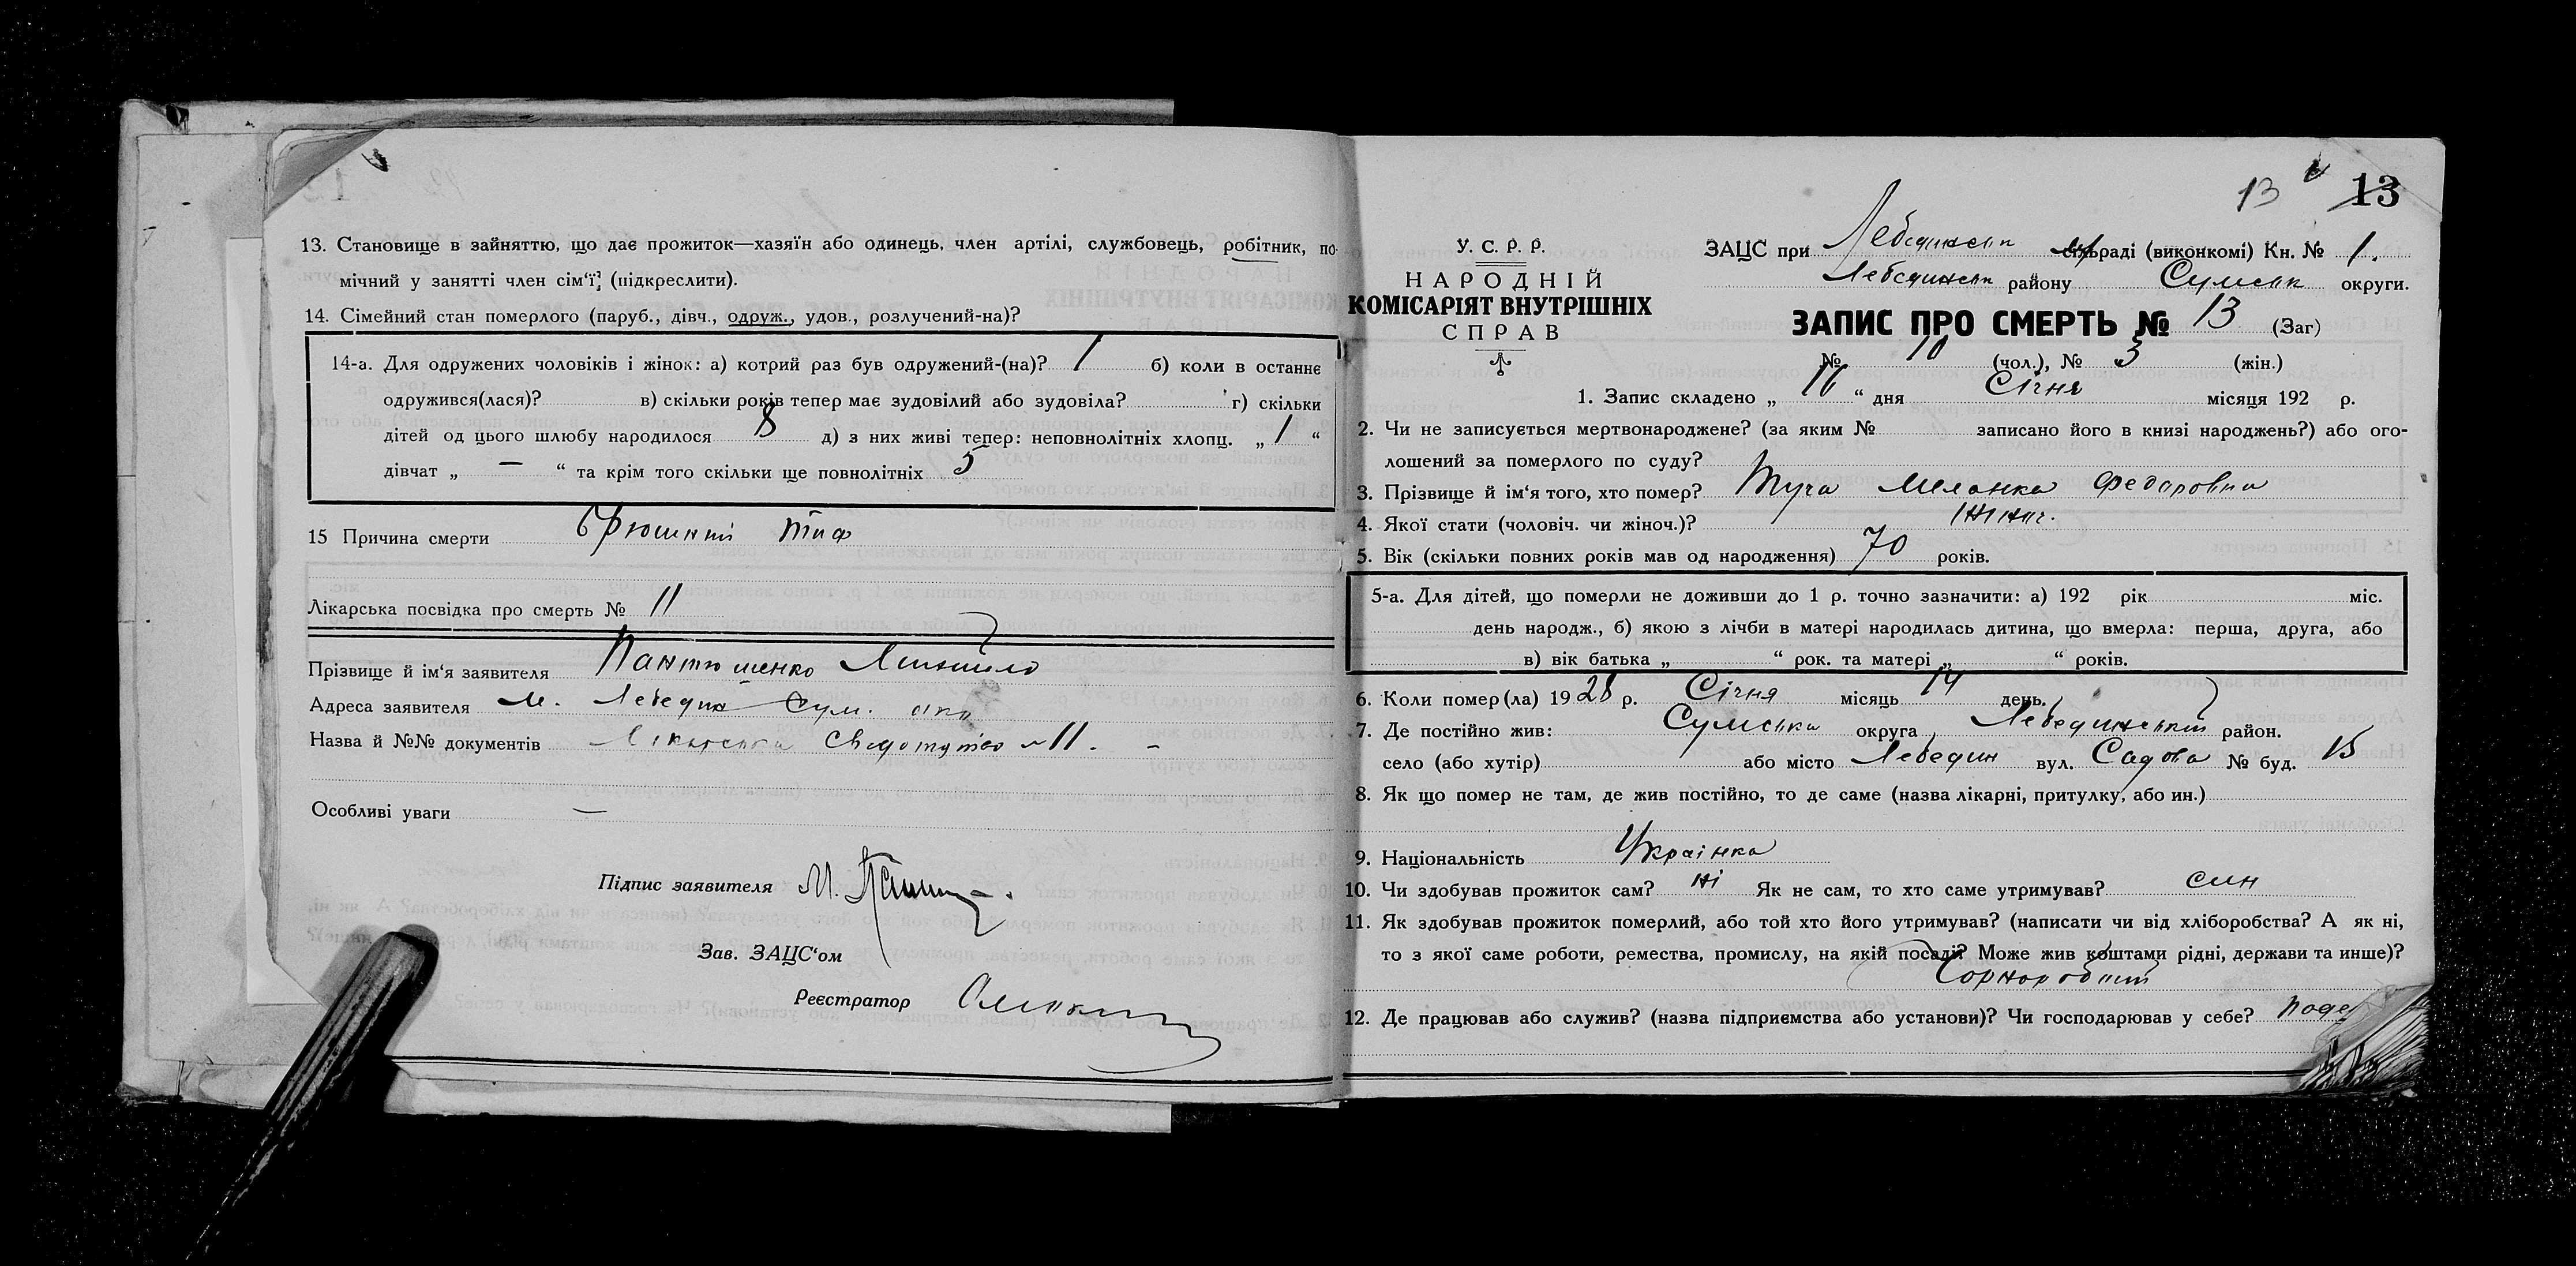 13. Становище в зайняттю, що дає прожиток—хазяїн або одинець, член артілі, службовець, робітник, по-
мічний у занятті член сім'ї? (підкреслити).
14. Сімейний стан померлого (паруб., дівч., одруж., удов., розлучений-на)?
14-а. Для одружених чоловіків і жінок: а) котрий раз був одружений-(на)? 1 б) коли в останнє
одружився(лася)? в) скільки років тепер має зудовілий або зудовіла? г) скільки
дітей од цього шлюбу народилося 8 д) з них живі тепер: неповнолітніх хлопц. „ 1 “
дівчат „ — “ та крім того скільки ще повнолітніх 5
15 Причина смерти Брюшний тиф
Лікарська посвідка про смерть № 11
Прізвище й ім'я заявителя Пантюшенко
Адреса заявителя м. Лебедин Сум. окр
Назва й №№ документів Лікарська №11. —
Особливі уваги —
Підпис заявителя М.
Зав. ЗАЦС'ом
Реєстратор
13 13
У. С. Р. Р.
НАРОДНІЙ
КОМІСАРІЯТ ВНУТРІШНІХ
СПРАВ
ЗАЦС при Лебединськ сільраді (виконкомі) Кн. № 1.
Лебединськ району Сумськ округи.
ЗАПИС ПРО СМЕРТЬ № 13 (Заг)
№ 10 (чол.), № 3 (жін.)
1. Запис складено „ 16 “ дня Січня місяця 192 р.
2. Чи не записується мертвонароджене? (за яким № записано його в книзі народжень?) або ого-
лошений за померлого по суду?
3. Прізвище й ім'я того, хто помер? Туча Меланка Федоровна
4. Якої стати (чоловіч. чи жіноч.)? жіноч.
5. Вік (скільки повних років мав од народження) 70 років.
5-а. Для дітей, що померли не доживши до 1 р. точно зазначити: а) 192 рік міс.
день народж., б) якою з лічби в матері народилась дитина, що вмерла: перша, друга, або
в) вік батька „ “ рок. та матері „ “ років.
6. Коли помер(ла) 1928 р. Січня місяць 14 день.
7. Де постійно жив: Сумська округа Лебединський район.
село (або хутір) або місто Лебедин вул. Садова № буд. 15
8. Як що помер не там, де жив постійно, то де саме (назва лікарні, притулку, або ин.)
9. Національність Українка
10. Чи здобував прожиток сам? ні Як не сам, то хто саме утримував? син
11. Як здобував прожиток померлий, або той хто його утримував? (написати чи від хліборобства? А як ні,
то з якої саме роботи, ремества, промислу, на якій посаді? Може жив коштами рідні, держави та инше)?
Чорнороб
12. Де працював або служив? (назва підприємства або установи)? Чи господарював у себе?